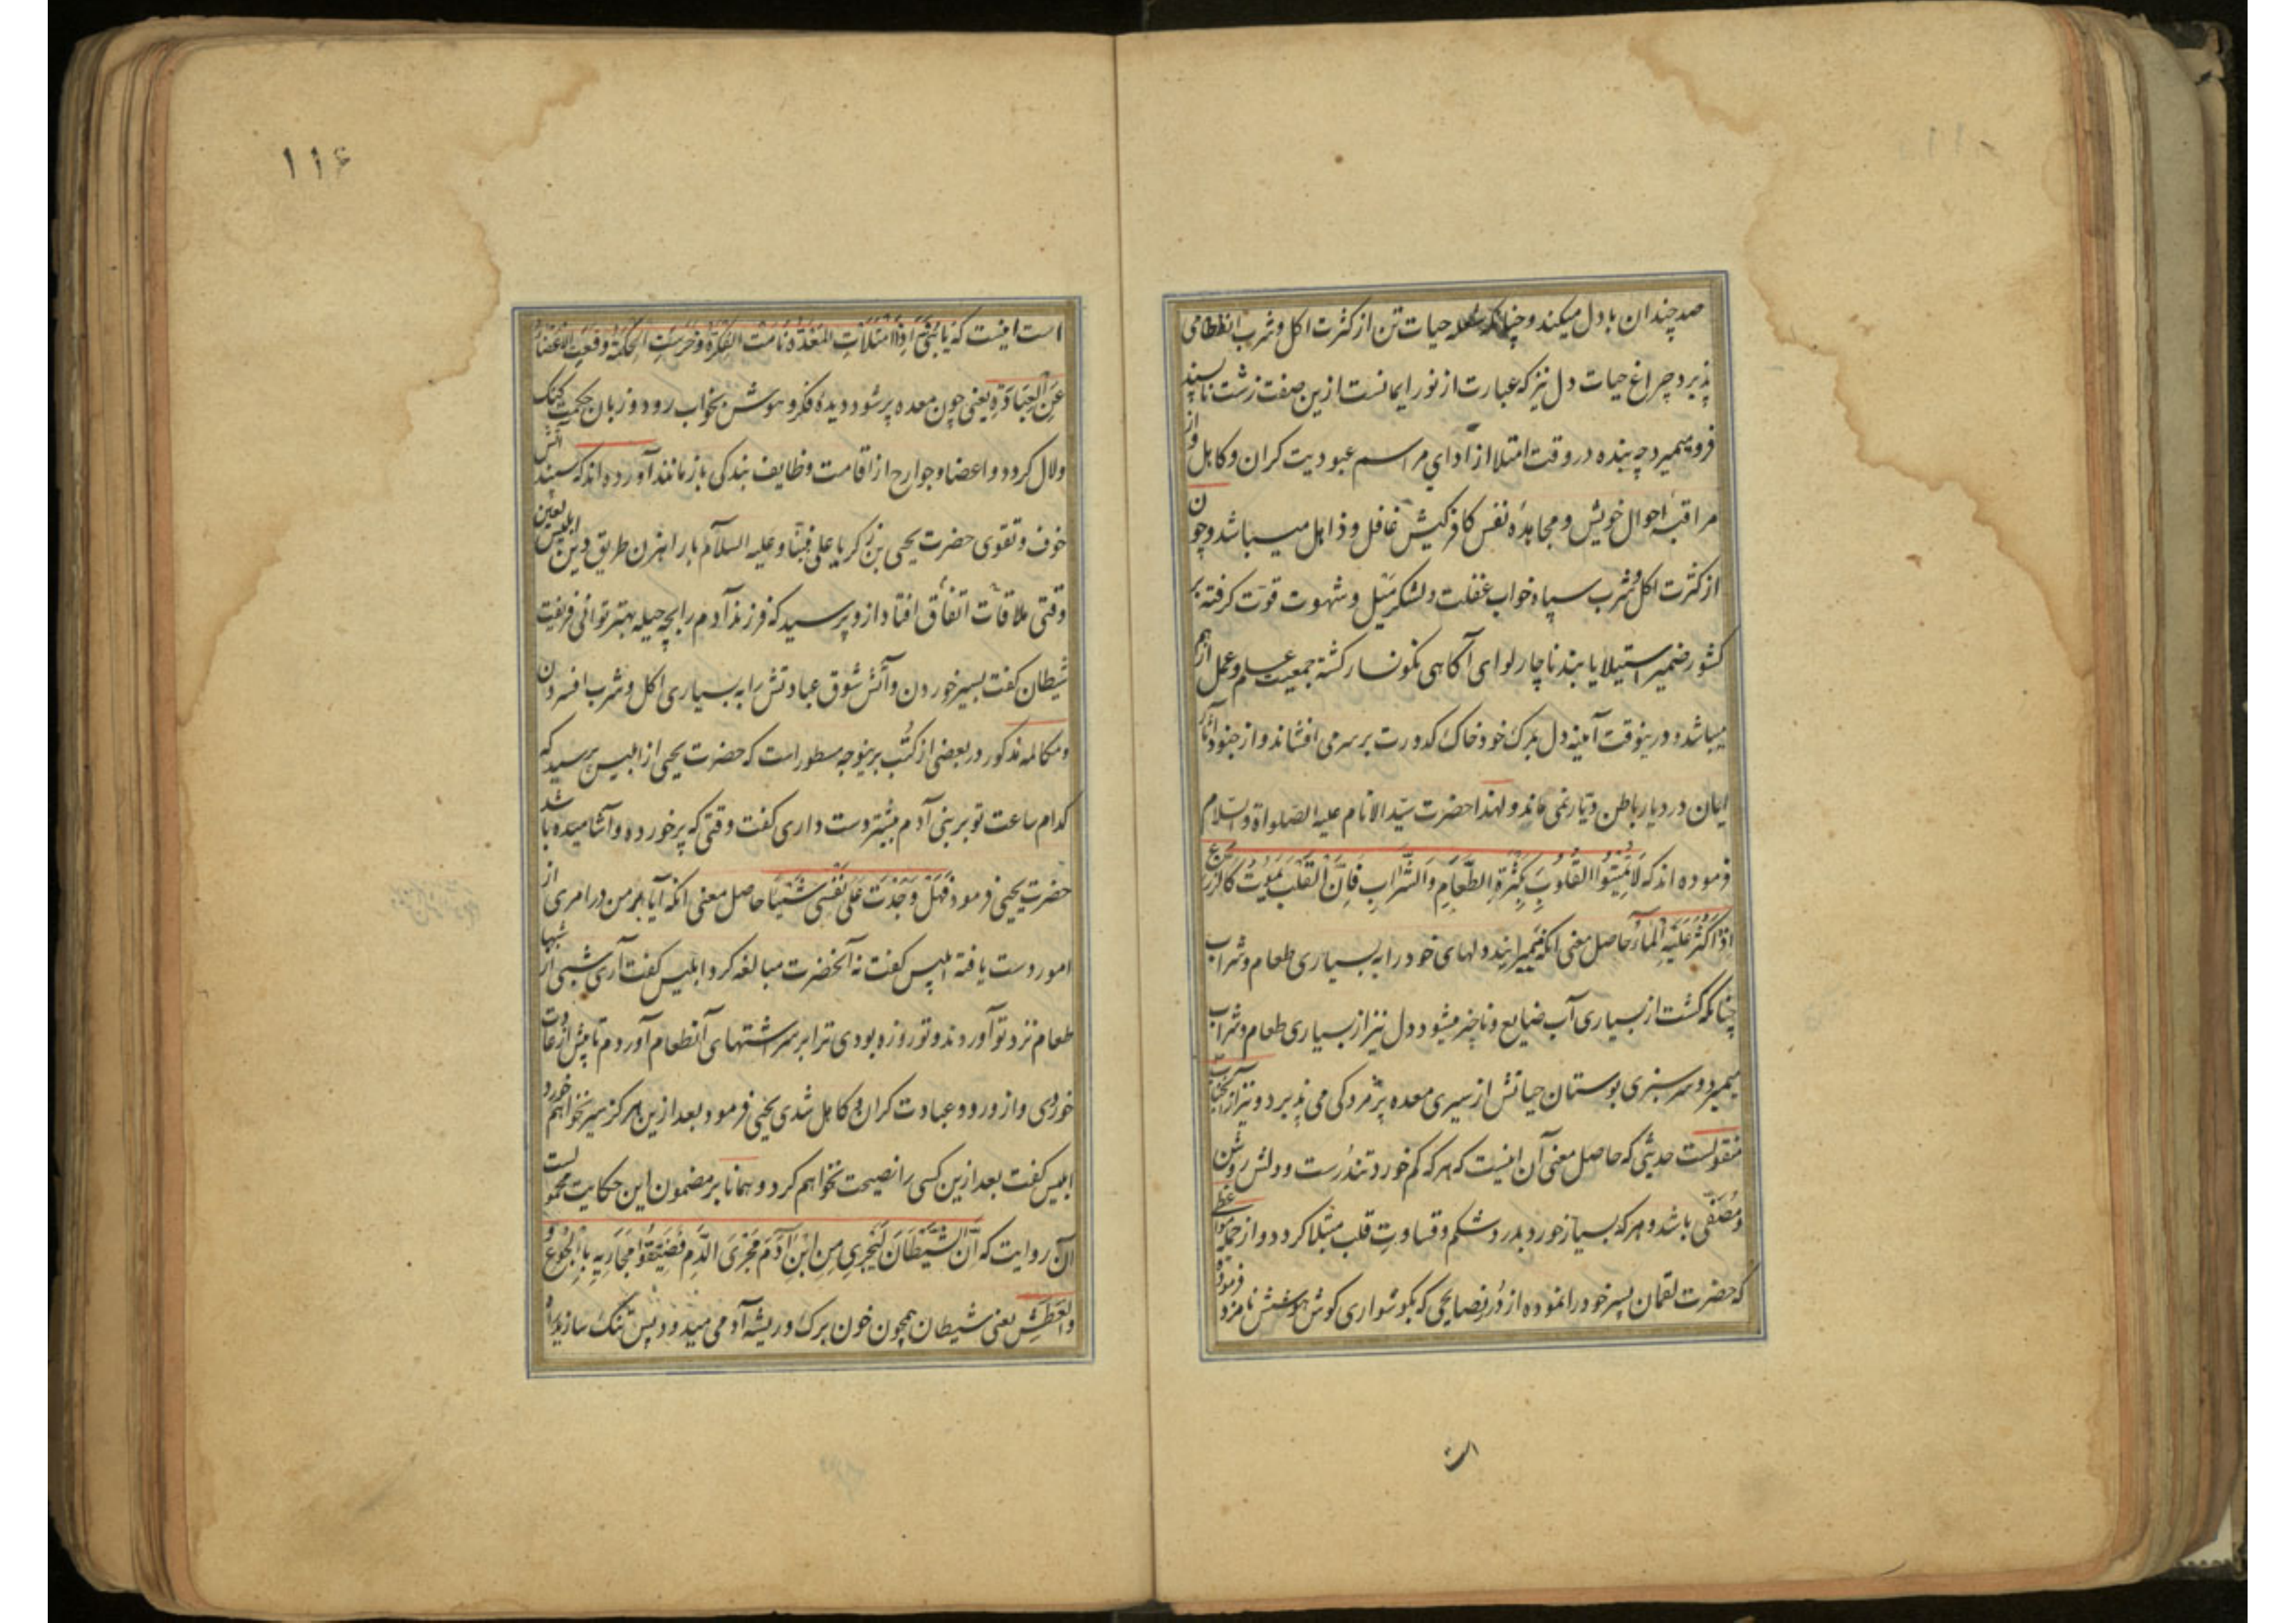 صد چندان با دل میکند و چنانکه شعله حیات تن از کثرت اکل و شرب انطفا می
پذیرد چراغ حیات دل نیز که عبارت از نور ایمانست ازین صفت زشت ناپسند
فرو میمیرد چه بنده در وقت امتلا از ادای مراسم عبودیت کران و کاهل و از
مراقبهٔ احوال خویش و مجاهدهٔ نفس کافرکیش غافل و ذاهل میباشد و چون
از کثرت اکل و شرب سپاه خواب غفلت و لشکر میل و شهوت قوت کرفته بر
کشور ضمیر استیلا یابند ناچار لوای آکاهی نکونسار کشته جمعیت علم و عمل از هم
میپاشد و درینوقت آینه دل بمرک خود خاک کدورت بر سر می افشاند و از جنود آثار
ایمان در دیار باطن دیار نمی ماند و لهذا حضرت سید الانام علیه الصلواة و السلام
فرموده اند که لَا تُمِیتُوا القُلُوبَ بِکَثْرَةِ الطَّعَامِ وَالشَّرَابِ فَاِنَّ القَلْبَ یَمُوتُ کَالزَّرْعِ
اِذَا کَثُرَ عَلَیْهِ الْمَآءُ حاصل معنی آنکه نمیرانید دلهای خود را به بسیاری طعام و شراب
چنانکه کشت از بسیاری آب ضایع و ناچیز میشود دل نیز از بسیاری طعام و شراب
میمیرد و سرسبزی بوستان حیاتش از سیری معده پژمردکی می پذیرد و نیز از آنجناب
منقولست حدیثی که حاصل معنی آن اینست که هر که کم خورد تندرست و دلش روشن
و مصفی باشد و هر که بسیار خورد بدرد شکم و قساوت قلب مبتلا کردد و از جمله مواعظی
که حضرت لقمان پسر خود را نموده از دُرر نصایحی که بکوشواری کوش هوشش نامزد فرموده
است
۱۱۶
است اینست که یَا بُنَیَّ اِذَا امْتَلَأَتِ المَعِدَةُ نَامَتِ الفِکْرَةُ وَ خَرِسَتِ الحِکْمَةُ وَ قَعَدَتِ الاَعْضَاءُ
عَنِ العِبَادَةِ یعنی چون معده پر شود دیدهٔ فکر و هوش بخواب رود و زبان حکمت کنک
و لال کردد و اعضا و جوارح از اقامت وظایف بندکی باز مانند آورده اند که سپند آتش
خوف و تقوی حضرت یحیی بن زکریا علی نبینا و علیه السلام با راهزن طریق دین ابلیس لعین
وقتی ملاقات اتفاق افتاد ازو پرسید که فرزند آدم را بچه حیله بهتر توانی فریفت
شیطان کفت بسیر خوردن و آتش شوق عبادتش را به بسیاری اکل و شرب افسردن
و مکالمه مذکور در بعضی از کتُب برینوجه مسطور است که حضرت یحیی از ابلیس پرسید که
کدام ساعت تو بر بنی آدم بیشتر دست داری کفت وقتی که پر خورده و آشامیده باشد
حضرت یحیی فرمود فَهَلْ وَجَدْتَ عَلَی نَفْسِی شَیْئًا حاصل معنی آنکه آیا بر من در امری از
امور دست یافته ابلیس کفت نه آنحضرت مبالغه کرد ابلیس کفت آری شبی از شبها
طعام نزد تو آوردند و تو روزه بودی ترا بر سر اشتهای آنطعام آوردم تا پیش از عادت
خوردی و از ورد و عبادت کران و کاهل شدی یحیی فرمود بعد ازین هرکز سیر نخواهم خورد
ابلیس کفت بعد ازین کسی را نصیحت نخواهم کرد و همانا بر مضمون این حکایت محمولست
آن روایت که اِنَّ الشَّیْطَانَ لَیَجْرِی مِنِ ابْنِ آدَمَ مَجْرَی الدَّمِ فَضَیِّقُوا مَجَارِیَهِ بِالْجُوعِ وَ
العَطَشِ یعنی شیطان همچون خون برک و ریشه آدمی میدود پس تنک سازید